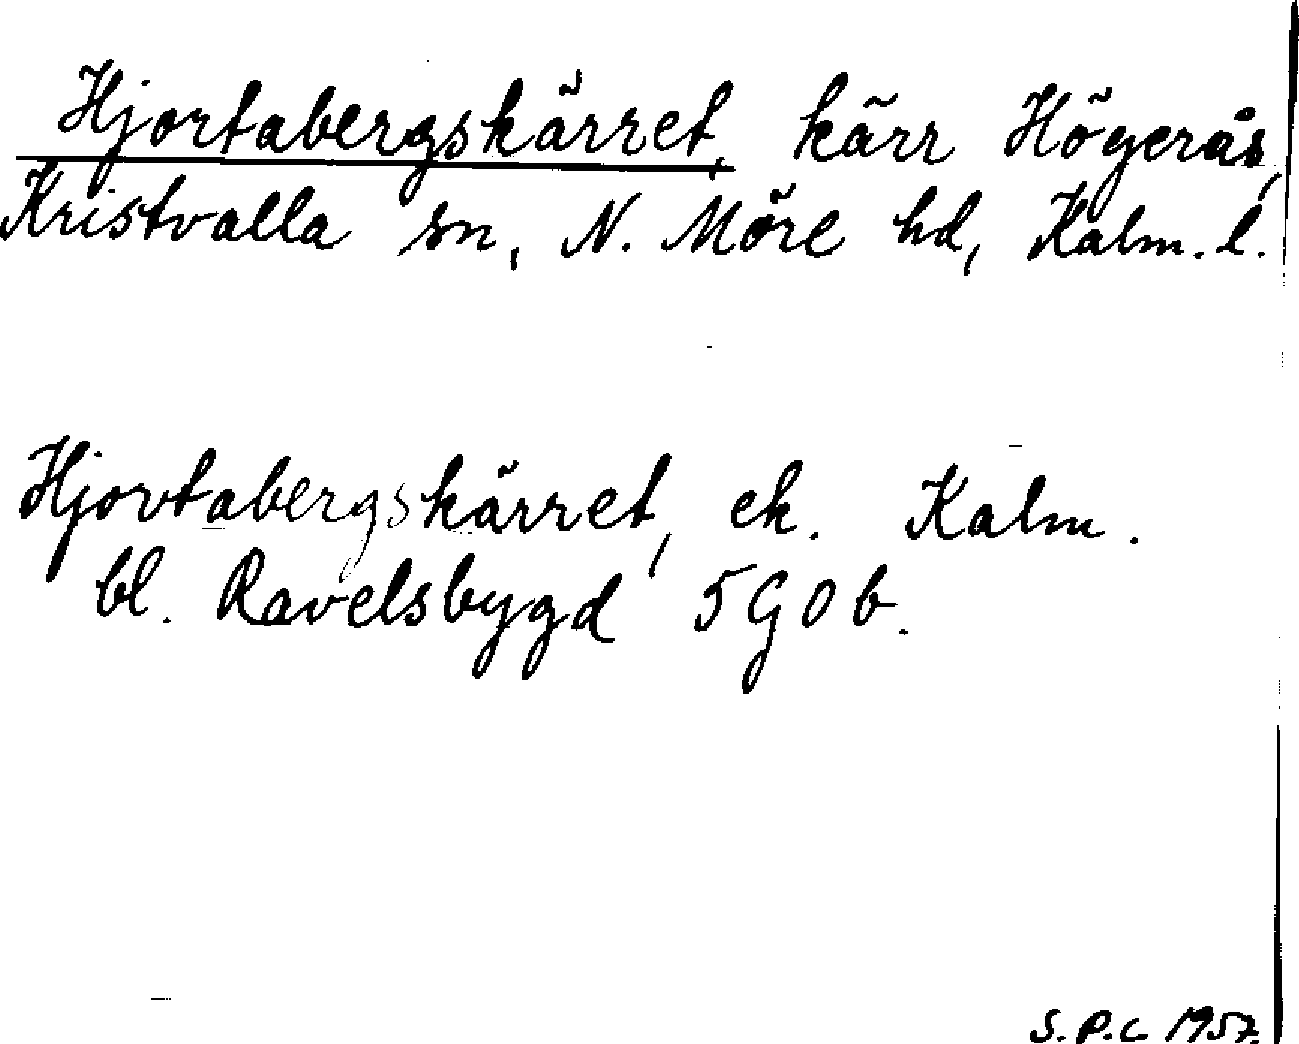 Hjortabergskärret, kärr Högerås,
Kristvalla sn, N. Möre hd, Kalm. l.
Hjortabergskärret, ek. Kalm.
bl. Ravelsbygd 5G0b.
S.P.C. 1957.